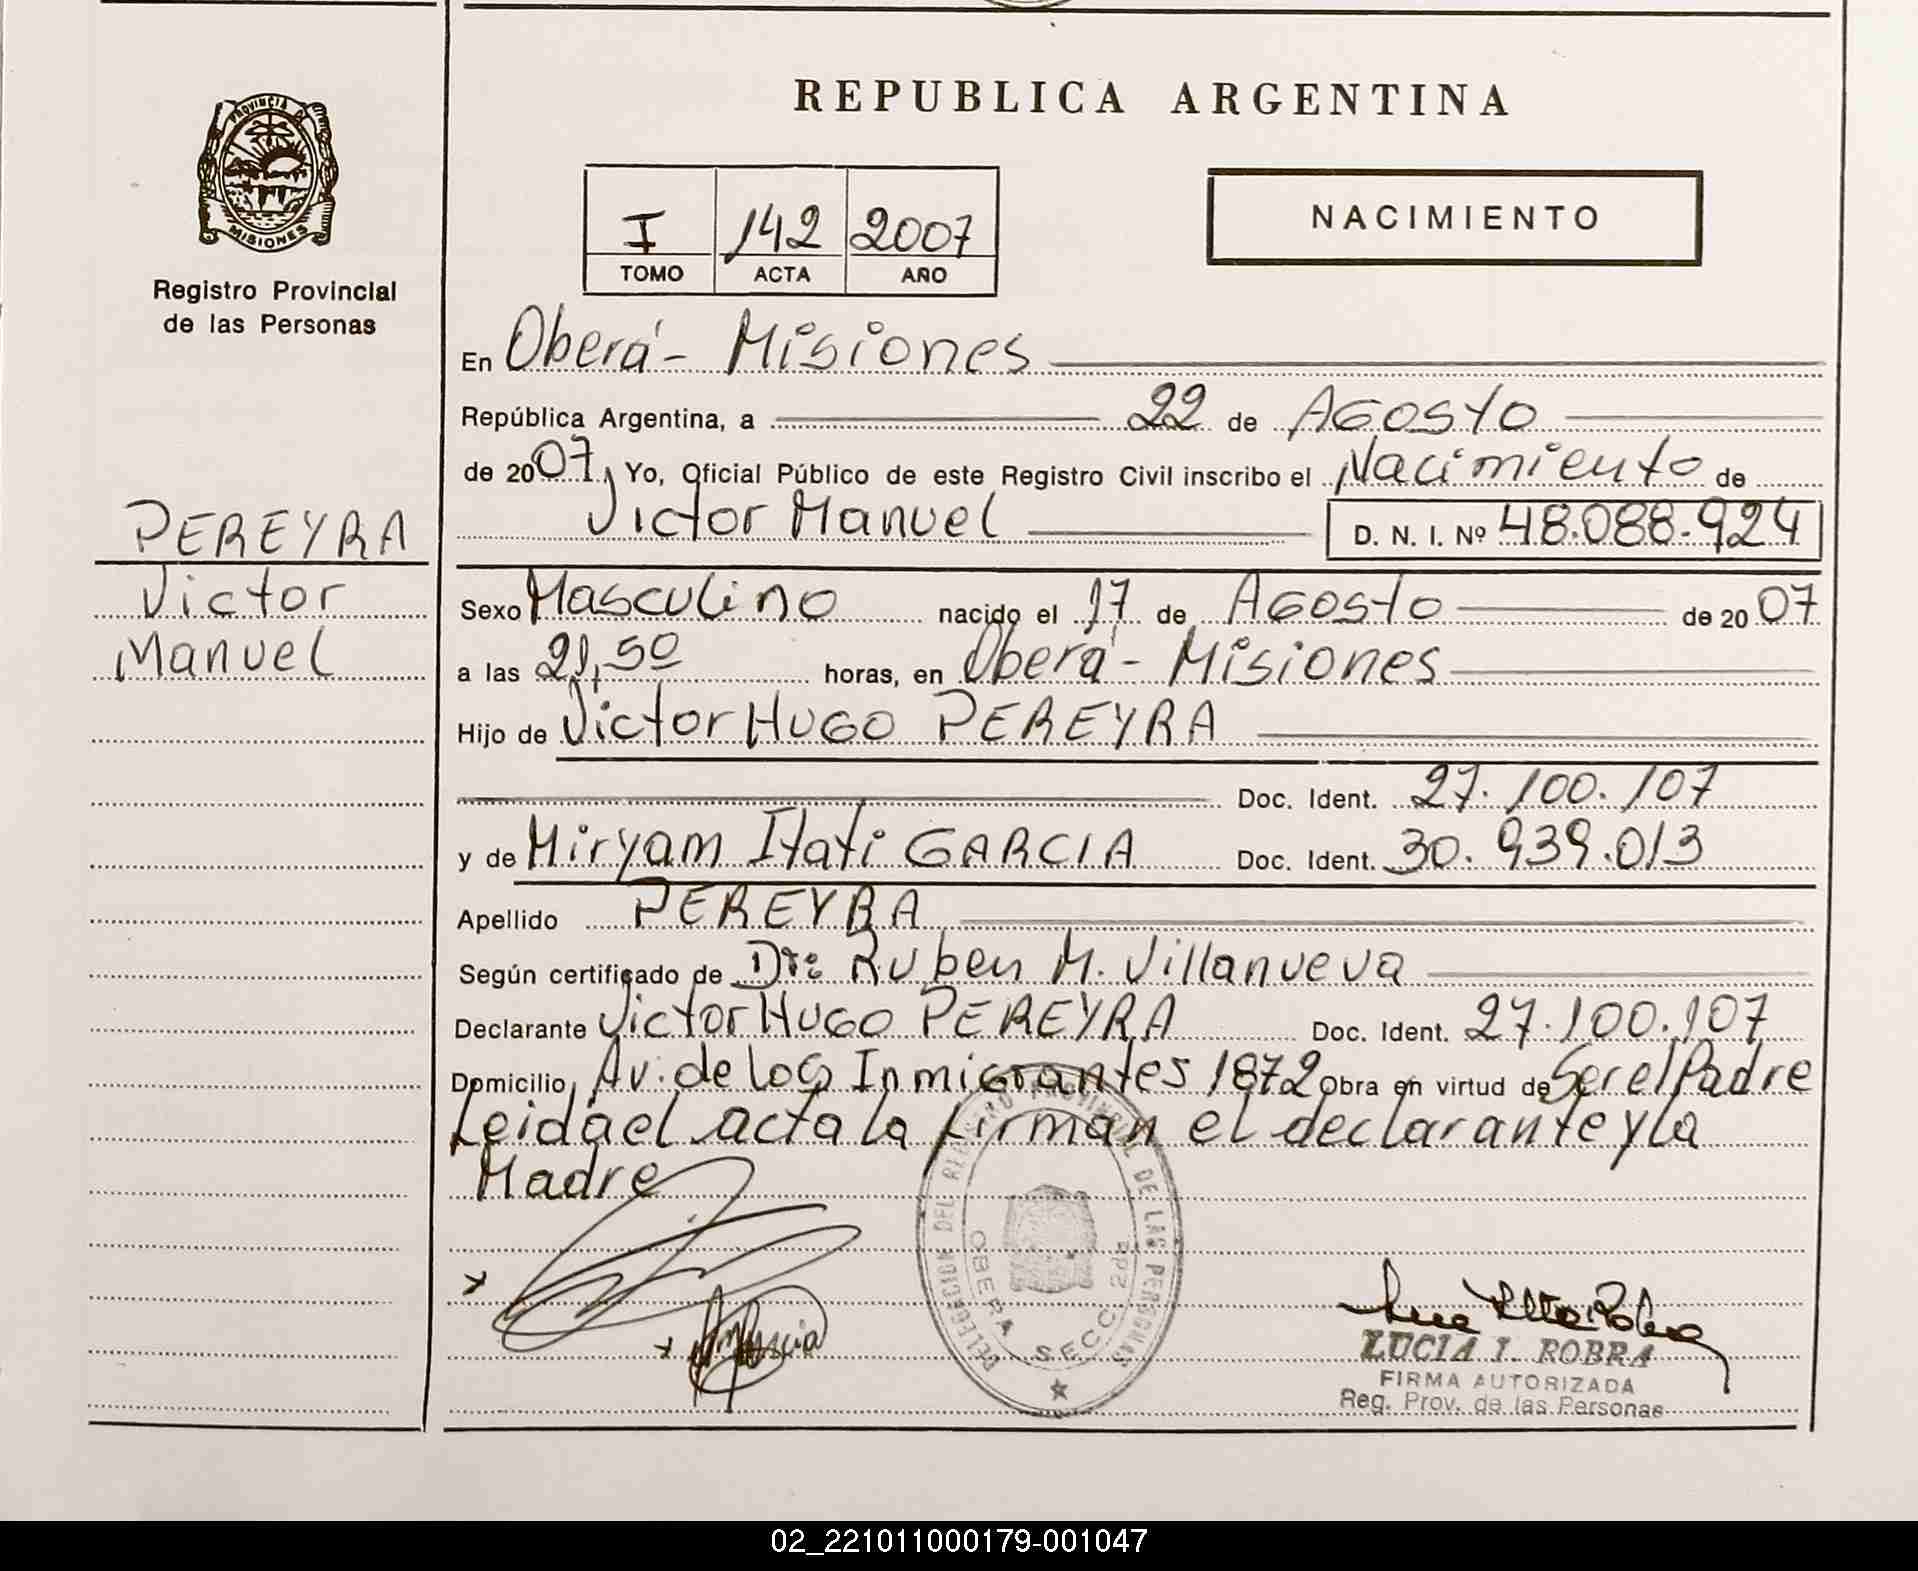 PROVINCIA DE
MISIONES
Registro Provincial
de las Personas
PEREYRA
Victor
Manuel
REPUBLICA ARGENTINA
I 142 2007
TOMO ACTA AÑO
NACIMIENTO
En Oberá - Misiones
República Argentina, a 22 de Agosto
de 2007, Yo, Oficial Público de este Registro Civil inscribo el Nacimiento de
Victor Manuel D. N. I. Nº 48.088.924
Sexo Masculino nacido el 17 de Agosto de 2007
a las 21,50 horas, en Oberá - Misiones
Hijo de Victor Hugo PEREYRA
Doc. Ident. 27.100.107
y de Miryam Itati GARCIA Doc. Ident. 30.939.013
Apellido PEREYRA
Según certificado de Dr: Ruben M. Villanueva
Declarante Victor Hugo PEREYRA Doc. Ident. 27.100.107
Domicilio Av. de los Inmigrantes 1872 Obra en virtud de Ser el Padre
Leida el acta la firman el declarante y la
Madre
DELEGACION DEL REGISTRO PROVINCIAL DE LAS PERSONAS
OBERA SECC. 2da
LUCIA I. ROBRA
FIRMA AUTORIZADA
Reg. Prov. de las Personas
02_221011000179-001047